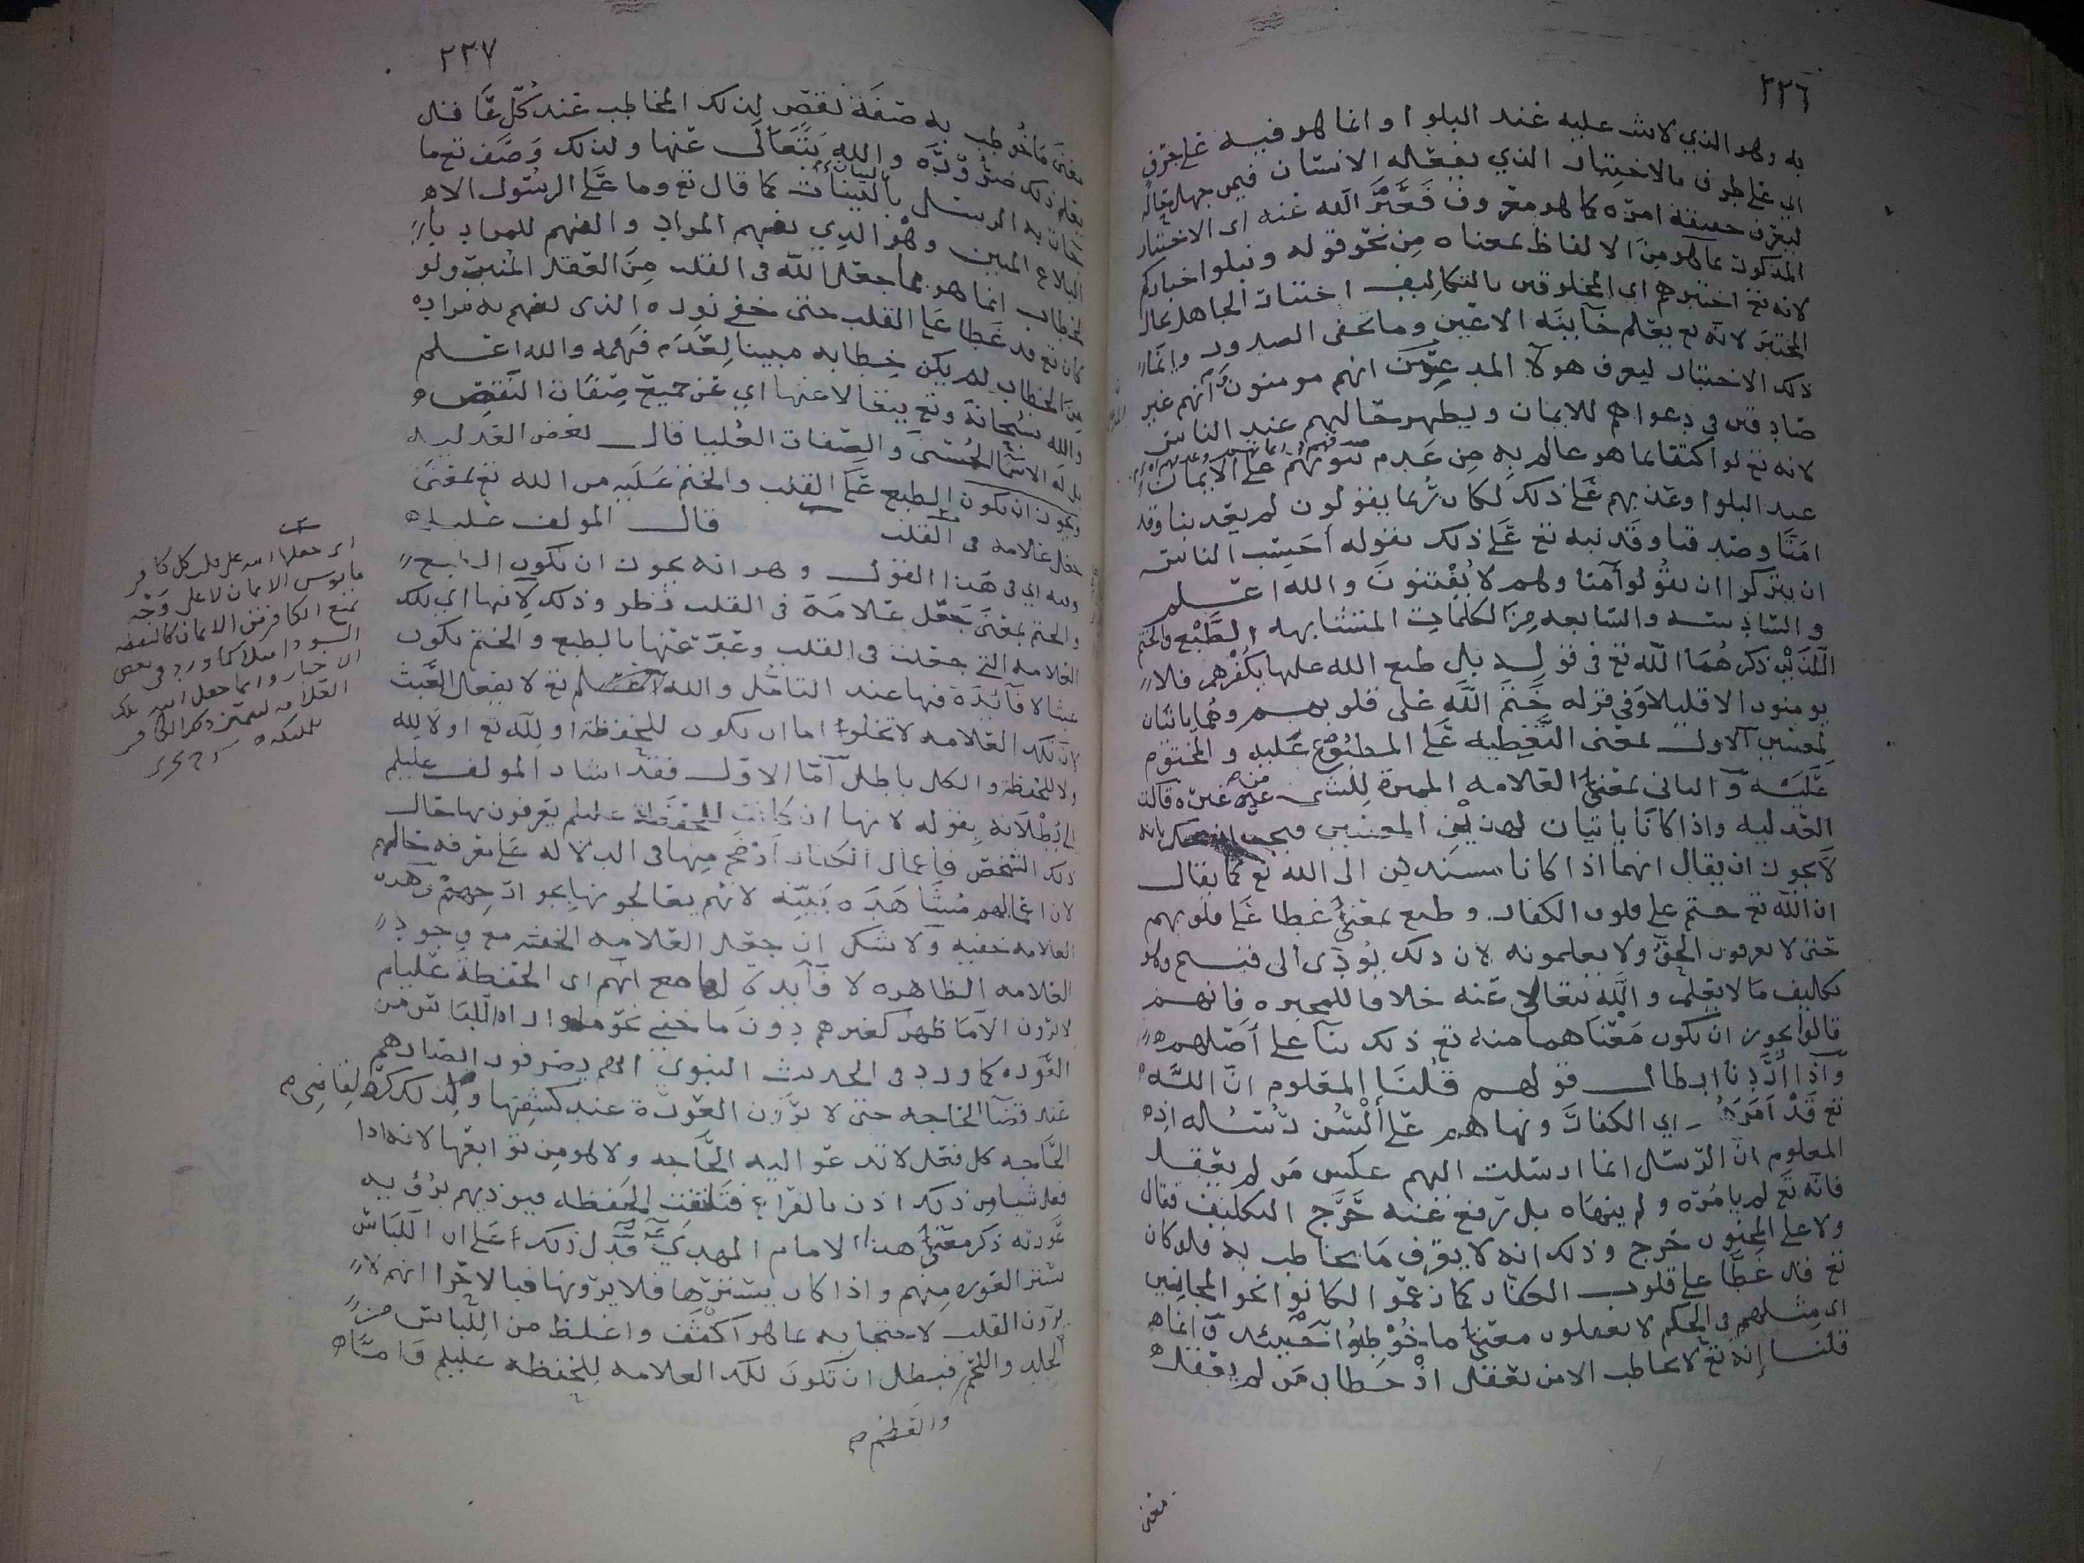 ٢٢٦
به وهو الذي لابث عليه عند البلوا وانما هو فيه على جري
اي على طرف بالاختبار الذي يفعله الانسان فيمن جهل حاله
ليعرف حقيقة امره كما هو معروف فعبر الله عنه اي الاختبار
المذكور بما هو من الالفاظ بمعناه من نحو قوله ونبلوا اخباركم
لانه تع اختبرهم اي المخلوقين بالتكاليف اختبار الجاهل بحال
المختبر لانه تع يعلم خآينة الاعين وما تخفى الصدور وانما
ذلك الاختبار ليعرف هولآ المدعون انهم مومنون وانهم غير
صادقين في دعواهم للايمان ويظهر حالهم عند الناس
لانه تع لو اكتفا بما هو عالم به من عدم على الايمان
عند البلوا وعذبهم على ذلك لكان ربما يقولون لم يعذبنا وقد
امنا وصدقنا وقد نبه تع على ذلك بقوله أحسب الناس
ان يتركوا ان يقولوا آمنا وهم لا يفتنون والله اعلم
والسادسه والسابعه من الكلمات المتشابهه الطبع والختم
اللذين ذكرهما الله تع في قوله بل طبع الله عليها بكفرهم فلا
يومنون الا قليلا وفي قوله ختم الله على قلوبهم وهما ياتيان
لمعنيين الاول بمعنى التغطيه على المطبوع عليه والمختوم
عليه والثاني بمعنى العلامه المميزة للشي عن غيره قالت
العدليه واذا كانا ياتيان لهذين المعنيين فيجب بانه
لا يجوز ان يقال انهما اذا كانا مسندين الى الله تع كما يقال
ان الله تع ختم على قلوب الكفار وطبع بمعنى غطا على قلوبهم
حتى لا يعرفون الحق ولا يعلمونه لان ذلك يؤدى الى قبيح وهو
تكليف ما لا يعلم والله يتعالى عنه خلافا للمجبره فانهم
قالوا يجوز ان يكون معناهما منه تع ذلك بنآ على اصلهم
وآذا أردنا ابطال قولهم قلنا المعلوم ان الله
تع قد امرهم اي الكفار ونهاهم على ألسن رسله اذ
المعلوم ان الرسل انما ارسلت اليهم عكس من لم يعقل
فانه تع لم يامره ولم ينهاه بل ترفع عنه حرج التكليف فقال
ولا على المجنون حرج وذلك انه لا يعرف ما يخاطب به فلو كان
تع قد غطا على قلوب الكفار كما زعموا لكانوا نحو المجانين
اي مثلهم في الحكم لا يعقلون معنى ما خوطبوا
قلنا إنه تع لا يخاطب الا من يعقل اذ خطاب من لم يعقل
معنى
٢٢٧
معنى ما خوطب به صفة نقص لذلك المخاطب عند كل عاقل
يعلم ذلك ضرورة والله يتعالى عنها ولذلك وصف تع ما
جات به الرسل بالبينات كما قال تع وما على الرسول الا
البلاغ المبين وهو الذي يفهم المراد والفهم للمراد با
لخطاب انما هو بما جعل الله في القلب من العقل المنبت ولو
كان تع قد غطا على القلب حتى خفي نوره الذي يفهم به مراده
من الخطاب لم يكن خطابه مبينا لعدم فهمه والله اعلم
والله سبحانه وتع يتعالا عنها اي عن جميع صفات النقص
بل له الاسمآ الحسنى والصفات العليا قال بعض العدليه
ويجوز ان يكون الطبع على القلب والختم عليه من الله تع بمعنى
جعل علامه في القلب قال المولف عليلم
وفيه اي في هذا القول وهو انه يجوز ان يكون الطبع
والختم بمعنى جعل علامة في القلب نظر وذلك لانها اي تلك
العلامه التي جعلت في القلب وعبر عنها بالطبع والختم تكون
عبثا لا فآئدة فيها عند التامل والله تع لا يفعل العبث
لان تلك العلامه لا تخلوا اما ان تكون للحفظة او لله تع او لا لله
ولا للحفظة والكل باطل آما الاول فقد اشار المولف عليلم
الى بطلانه بقوله لانها ان كانت للحفظة عليلم يعرفون بها حال
ذلك الشخص فاعمال الكفار أوضح منها في الدلاله على معرفة حالهم
لان اعمالهم مشاهده بينه لانهم يعالجونها بجوارحهم وهذه
العلامه خفيه ولا شك ان جعل العلامه الخفيه مع وجود
العلامه الظاهره لا فآيدة لها مع انهم اى الحفظة عليلم
لا يرون الا ما ظهر كغيرهم دون ما خفي نحو ما واراه اللباس من
العوره كما ورد في الحديث النبوي انهم يصرفون ابصارهم
عند قضآ الحاجه حتى لا يرون العورة عند كشفها ولذلك كره لقاضي
الحاجه كل فعل لا تدعوا اليه الحاجه ولا هو من توابعها لانه اذا
فعل شيا من ذلك اذن بالفراغ فتلتفت الحفظه فيوذيهم برؤيه
عورته ذكر معنى هذا الامام المهدي فدل ذلك على ان اللباس
يستر العوره منهم واذا كان يسترها فلا يرونها فبالاحرا انهم لا
يرون القلب لاحتجابه بما هو أكثف واغلظ من اللباس من
الجلد واللحم فبطل ان تكون تلك العلامه للحفظه عليلم وامآ
والعظم
اي جعلها الله على قلب كل كافر
مايوس الايمان لا على وجه
يمنع الكافر من الايمان كالنقطه
السودا مثلا كما ورد في بعض
الاخبار وانما جعل الله تلك
العلامه لتميز ذلك الكافر
للمليكه